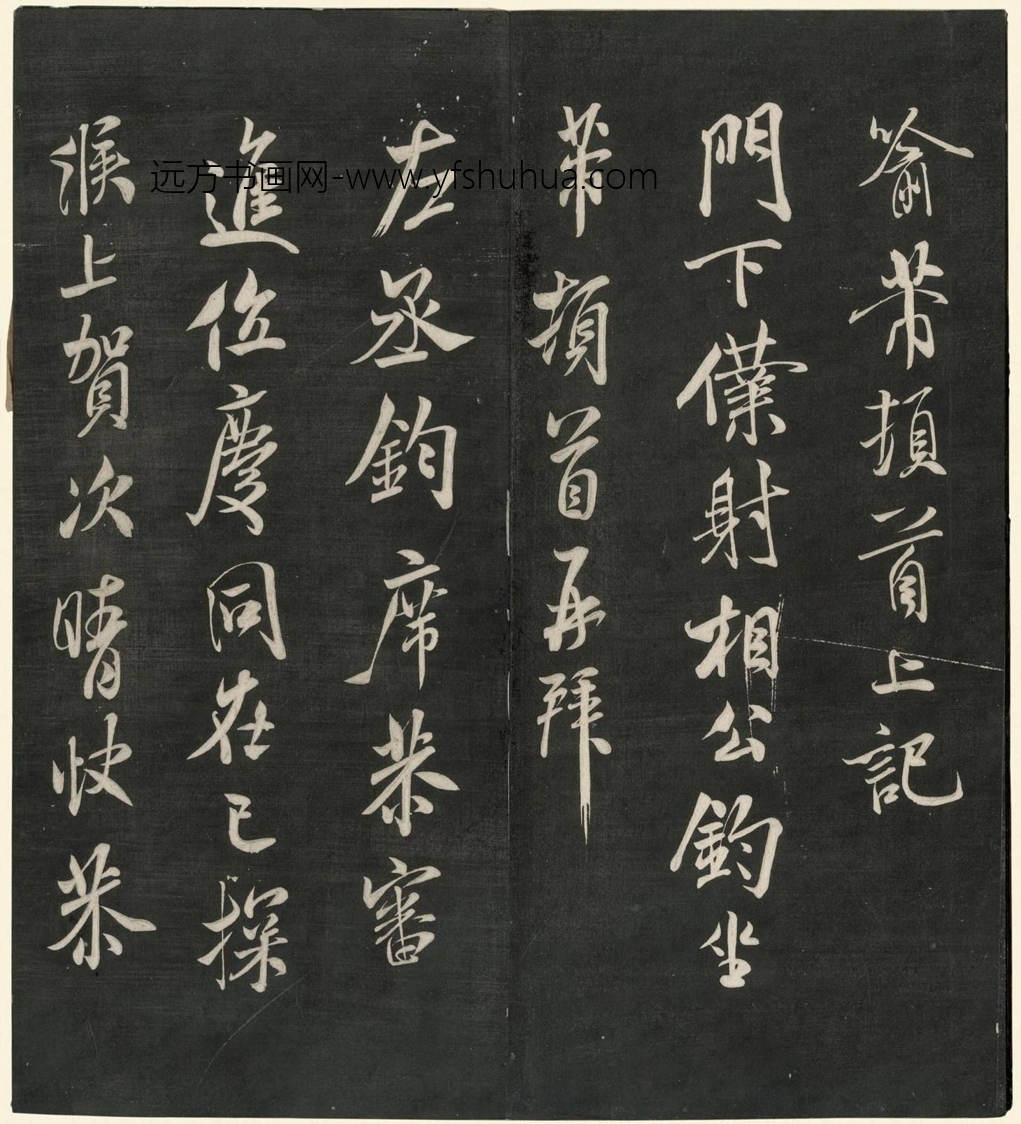 喻芾頓首上記
門下僕射相公鈞坐
芾頓首再拜
左丞鈞席恭審
進位慶同在已探
候上賀次晴快恭
远方书画网-www.yfshuhua.com